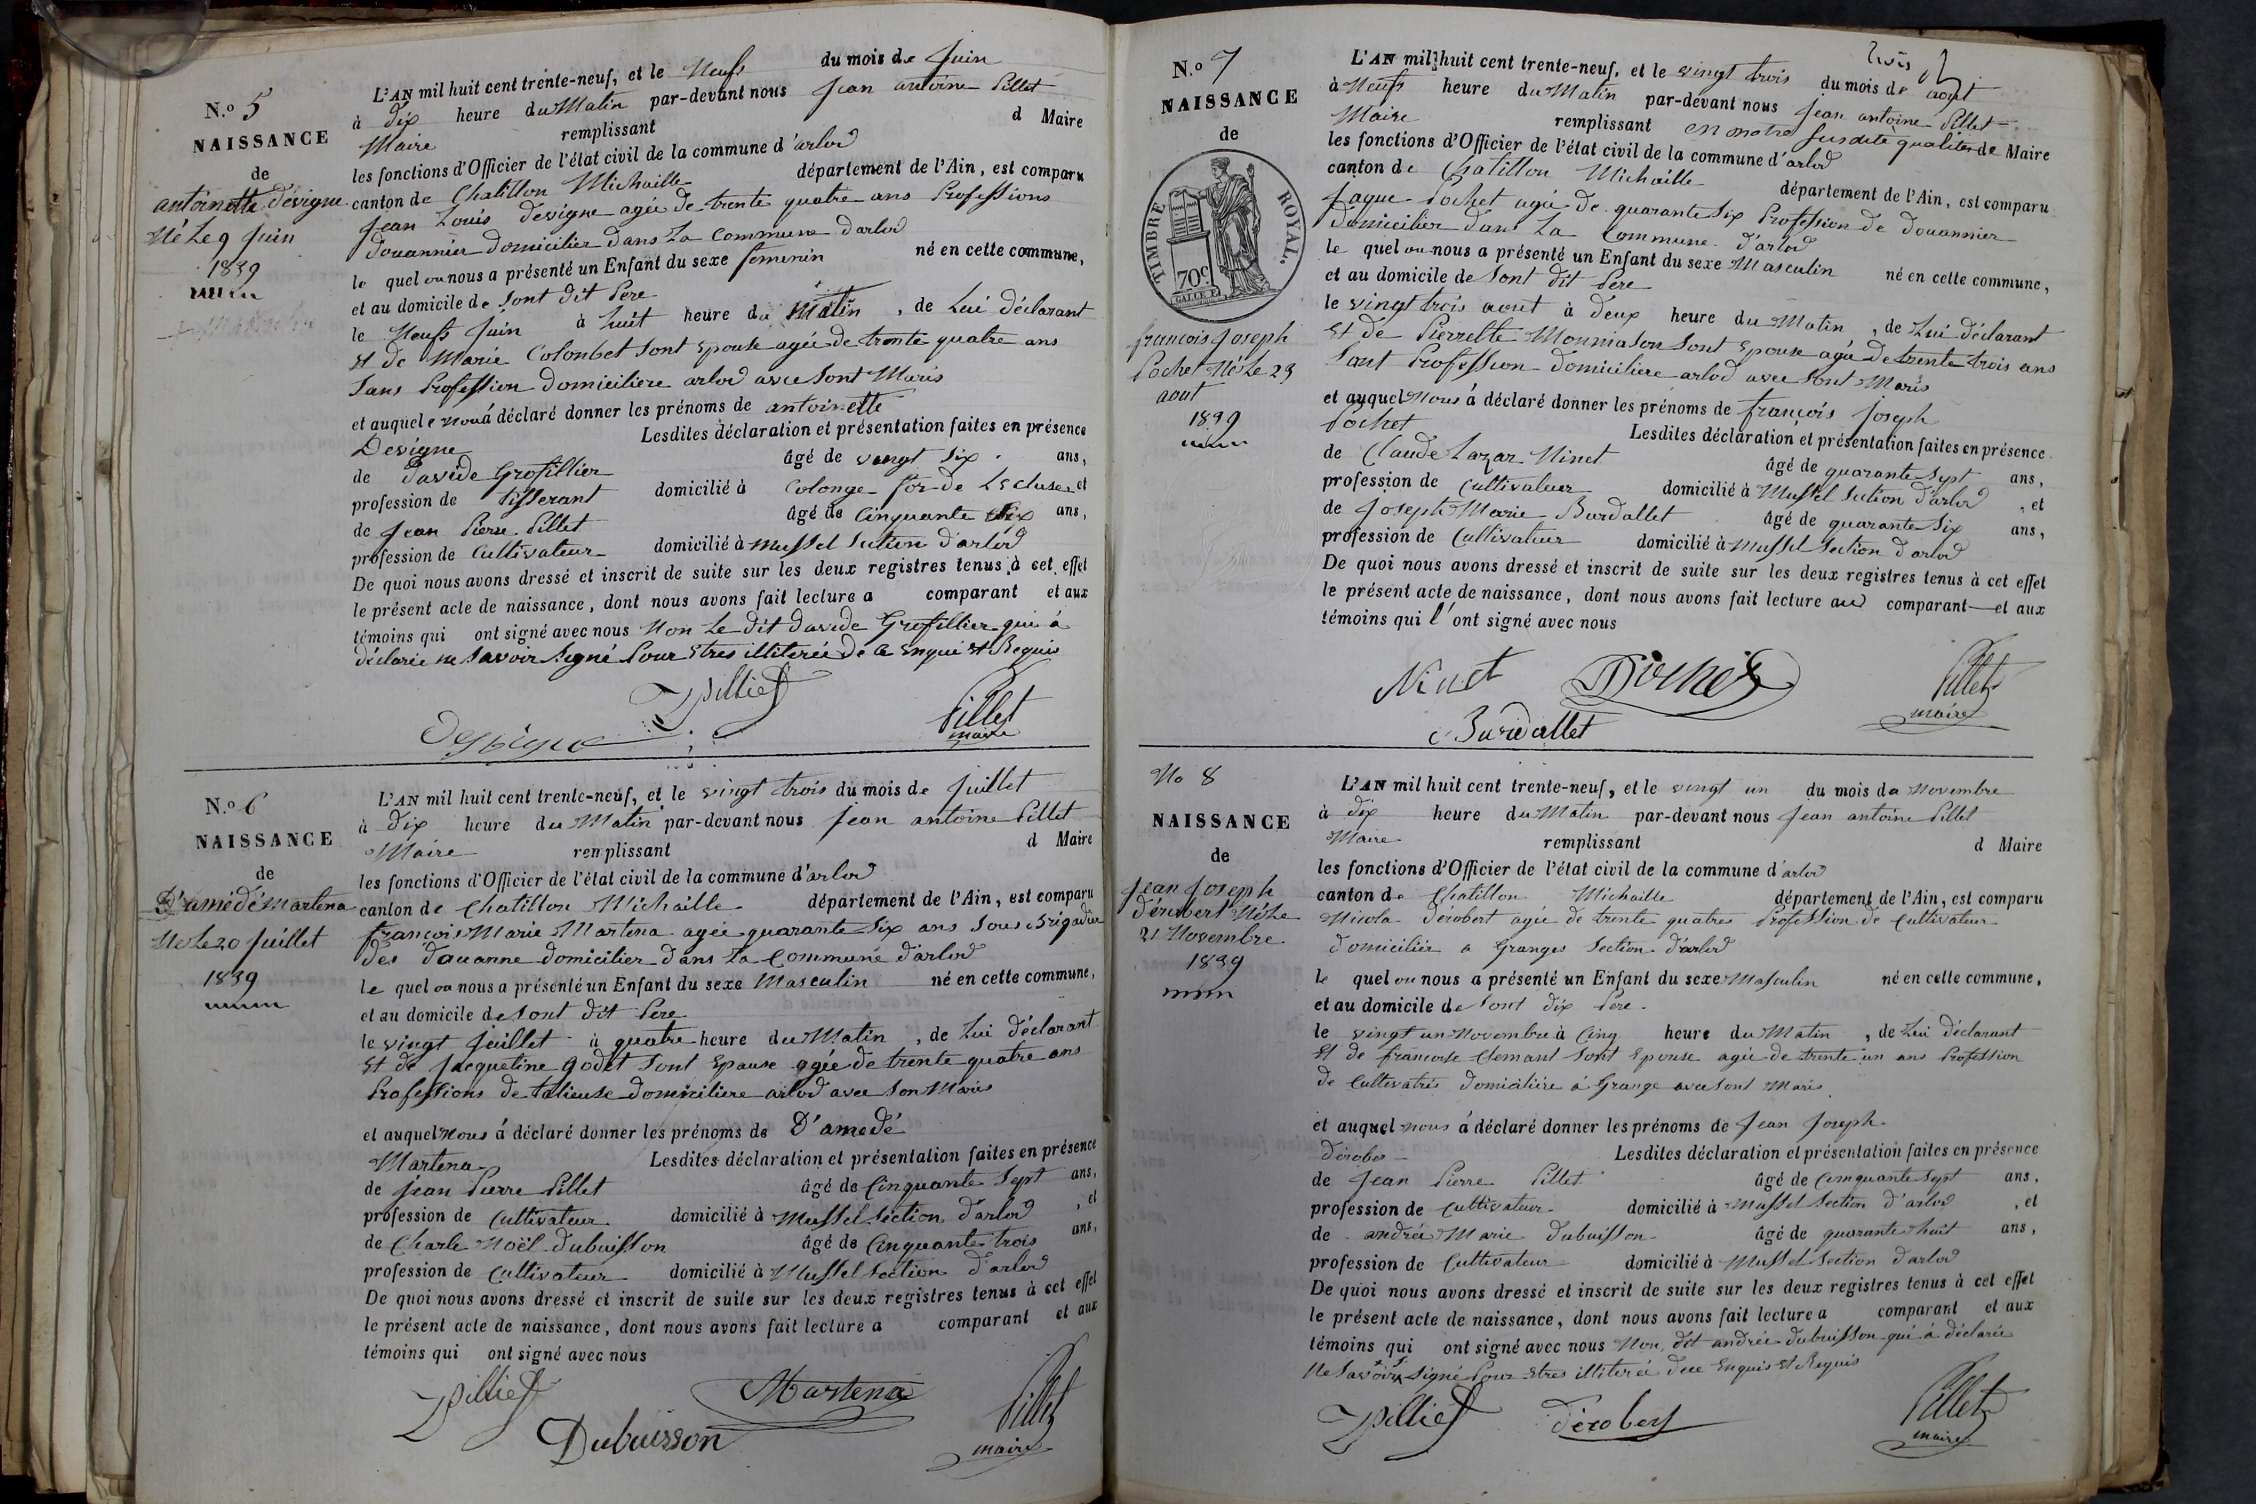 N.o 5
NAISSANCE
de
antoinette dévigne
Né Le 9 Juin
1839
L'AN mil huit cent trente-neuf, et le Neufs du mois de Juin
à dix heure du Matin par-devant nous Jean antoine Pillet
Maire remplissant d Maire
les fonctions d'Officier de l'état civil de la commune d'arlod
canton de Chatillon Michaille département de l'Ain, est comparu
Jean Louis devigne agée de trente quatre ans Professions
douannier domicilier dans La Commune darlod
le quel ou nous a présenté un Enfant du sexe femenin né en cette commune,
et au domicile de Sont dit Pere
le Neufs Juin à huit heure du Matin , de Lui déclarant
Et de Marie Colombet Sont Epouse agée de trente quatre ans
Sans Profession domiciliere arlod avec Sont Maris
et auquel e nous á déclaré donner les prénoms de antoinette
Devigne Lesdites déclaration et présentation faites en présence
de davide Grosfillier âgé de vengt Six ans,
profession de tisserant domicilié à Colonge for de Lecluse et
de Jean Pierre Pillet âgé de Cinquante Six ans,
profession de Cultivateur domicilié à Mussel Section d'arlod
De quoi nous avons dressé et inscrit de suite sur les deux registres tenus à cet effet
le présent acte de naissance, dont nous avons fait lecture a comparant et aux
témoins qui ont signé avec nous Non Le dit davide Grofillier qui à
déclarée ne Savoir Signé Pour Etres illiterée de Ce Enqui Et Requis
Pillet
Pillet
maire
N.o 6
NAISSANCE
de
D'amédé Martena
Né Le 20 Juillet
1839
L'AN mil huit cent trente-neuf, et le vingt trois du mois de Juillet
à dix heure du Matin par-devant nous Jean antoine Pillet
Maire remplissant d Maire
les fonctions d'Officier de l'état civil de la commune d'arlod
canton de Chatillon Michaille département de l'Ain, est comparu
francois Marie Martena agée quarante Six ans Sous Brigadier
des douanne domicilier dans La Commune d'arlod
le quel ou nous a présenté un Enfant du sexe Masculin né en cette commune,
et au domicile de Sont dit Pere
le vingt Juillet à quatre heure du Matin , de Lui déclarant
Et de Jacqueline Godet Sont Epouse agée de trente quatre ans
Professions de talieuse domiciliere arlod avec Son Maris
et auquel Nous á déclaré donner les prénoms de D'amedé
Martena Lesdites déclaration et présentation faites en présence
de Jean Pierre Pillet âgé de Cinquante Sept ans,
profession de Cultivateur domicilié à Mussel Section d'arlod , et
de Charle Noël dubuisson âgé de Cinquante trois ans,
profession de Cultivateur domicilié à Mussel Section d'arlod
De quoi nous avons dressé et inscrit de suite sur les deux registres tenus à cet effet
le présent acte de naissance, dont nous avons fait lecture a comparant et aux
témoins qui ont signé avec nous
Pillet
Martena
Dubuisson
Pillet
maire
N.o 7
NAISSANCE
de
TIMBRE ROYAL.
70c
francois Joseph
Pochet Né Le 23
aout
1839
trois
L'AN mil huit cent trente-neuf, et le vingt trois du mois de aout
à Neufs heure du Matin par-devant nous Jean antoine Pillet
Maire remplissant en notre Susdite qualité de Maire
les fonctions d'Officier de l'état civil de la commune d'arlod
canton de Chatillon Michaille département de l'Ain, est comparu
Jaque Pochet agée de quarante Six Profession de douannier
domicilier dans La Commune d'arlod
le quel ou nous a présenté un Enfant du sexe Masculin né en cette commune,
et au domicile de Sont dit Pere
le vingt trois aout à deux heure du Matin , de Lui déclarant
Et de Pierrette Monnason Sont Epouse agée de trente trois ans
Sant Profession domiciliere arlod avec Sont Maris
et auquel Nous à déclaré donner les prénoms de françois Joseph
Pochet Lesdites déclaration et présentation faites en présence
de Claude Lazar Ninet âgé de quarante Sept ans,
profession de Cultivateur domicilié à Mussel Section d'arlod , et
de Joseph Marie Burdallet âgé de quarante Six ans,
profession de Cultivateur domicilié à Mussel Section d'arlod
De quoi nous avons dressé et inscrit de suite sur les deux registres tenus à cet effet
le présent acte de naissance, dont nous avons fait lecture aud comparant et aux
témoins qui l'ont signé avec nous
Ninet
Pochet
Pillet
maire
Burdallet
No 8
NAISSANCE
de
Jean Joseph
dérobert Né Le
21 Novembre
1839
L'AN mil huit cent trente-neuf, et le vingt un du mois de Novembre
à dix heure du Matin par-devant nous Jean antoine Pillet
Maire remplissant d Maire
les fonctions d'Officier de l'état civil de la commune d'arlod
canton de Chatillon Michaille département de l'Ain, est comparu
Nicola dérobert agée de trente quatres Profession de Cultivateur
domicilier a Granges Section d'arlod
le quel ou nous a présenté un Enfant du sexe Masculin né en cette commune,
et au domicile de Sont dix Pere
le vingt un Novembre à Cinq heure du Matin , de Lui déclarant
Et de francoise Clemant Sont Epouse agée de trente un ans Profession
de Cultivatris domiciliére á Grange avec Sont Maris
et auquel nous á déclaré donner les prénoms de Jean Joseph
dérober Lesdites déclaration et présentation faites en présence
de Jean Pierre Pillet âgé de Cinquante Sept ans,
profession de Cultivateur domicilié à Mussel Section d'arlod , et
de andrée Marie dubuisson âgé de quarante huit ans,
profession de Cultivateur domicilié à Mussel Section d'arlod
De quoi nous avons dressé et inscrit de suite sur les deux registres tenus à cet effet
le présent acte de naissance, dont nous avons fait lecture a comparant et aux
témoins qui ont signé avec nous Non dit andrée dubuisson qui á déclarée
Ne Savoir Signé Pour Etres illiterée dece Enquis Et Requis
Pillet
dérobert
Pillet
maire